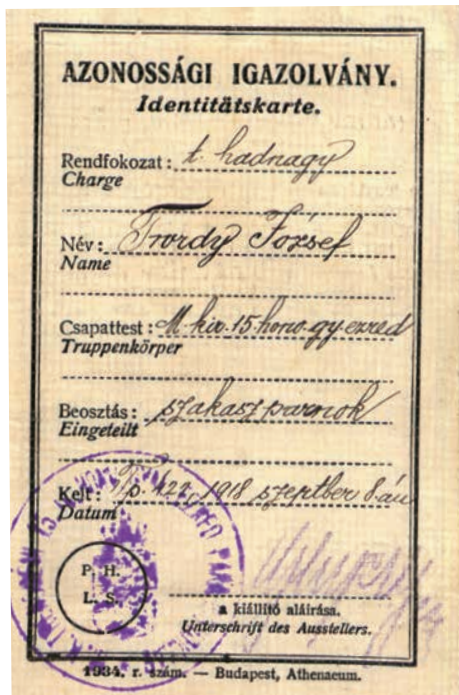 AZONOSSÁGI IGAZOLVÁNY.
Identitätskarte.
Rendfokozat: t. hadnagy
Charge
Név: Tvordy József
Name
Csapattest: M. kir. 15. honv. gy. ezred
Truppenkörper
Beosztás: szakaszparnok
Eingeteilt
Kelt: Tp. 424, 1918 szeptber 8-án
Datum
P. H.
L. S.
a kiállító aláírása.
Unterschrift des Ausstellers.
1934. r. szám. — Budapest, Athenaeum.